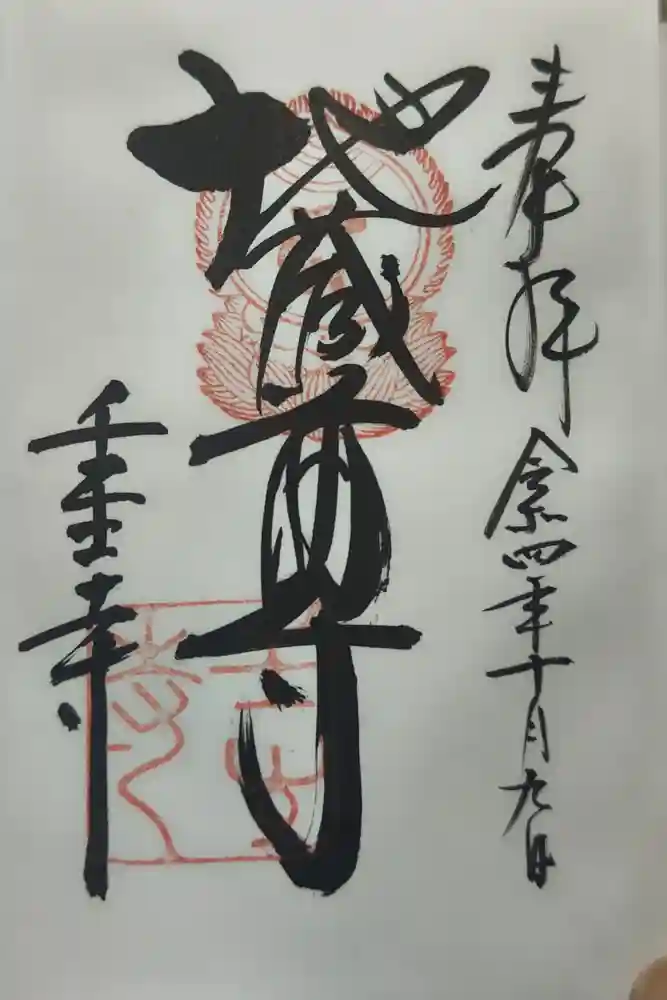 奉拝 令和四年十月九日
地蔵尊